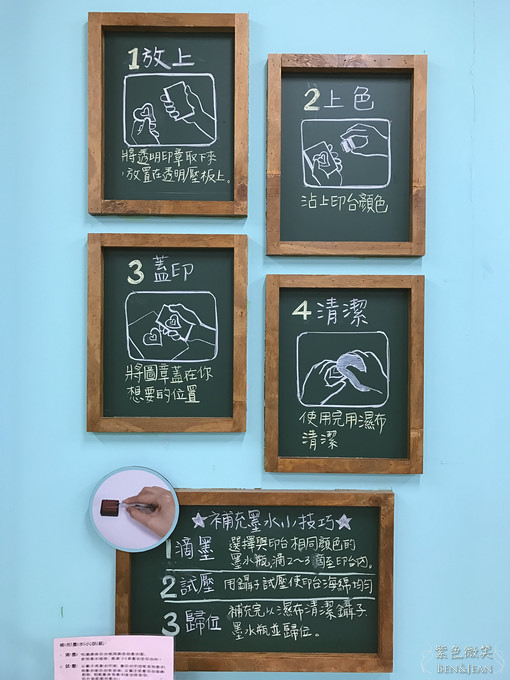 1放上
將透明印章取下來
放置在透明壓板上。
2上色
沾上印台顏色
3蓋印
將圖章蓋在你
想要的位置
4清潔
使用完用濕布
清潔
★補充墨水小技巧★
1滴墨 選擇與印台相同顏色的
墨水瓶,滴2~3滴至印台內。
2試壓 用鑷子試壓使印台海綿均勻
3歸位 補充完以濕布清潔鑷子
墨水瓶並歸位。
紫色微笑
BEN&JEAN